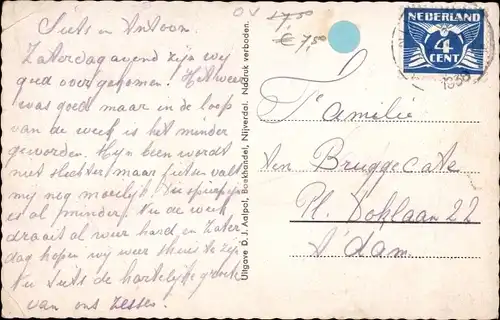 Siets en Antoon.
Zaterdagavond zijn wij
goed overgekomen. Het weer
was goed maar in de loop
van de week is het minder
geworden. Mijn been wordt
niet slechter maar fietsen valt
mij nog moeilijk. De spierpijn
is al minder. Nu de week
draait al weer hard en Zater
dag hopen wij weer thuis te zijn
Nu Siets de hartelijke groeten
van ons zesses.
OV 17,50
€ 7,50
NEDERLAND
4
CENT
1938
Uitgave D. J. Aalpol, Boekhandel, Nijverdal. Nadruk verboden.
Familie
ten Bruggecate
Pl. Doklaan 22
A'dam.